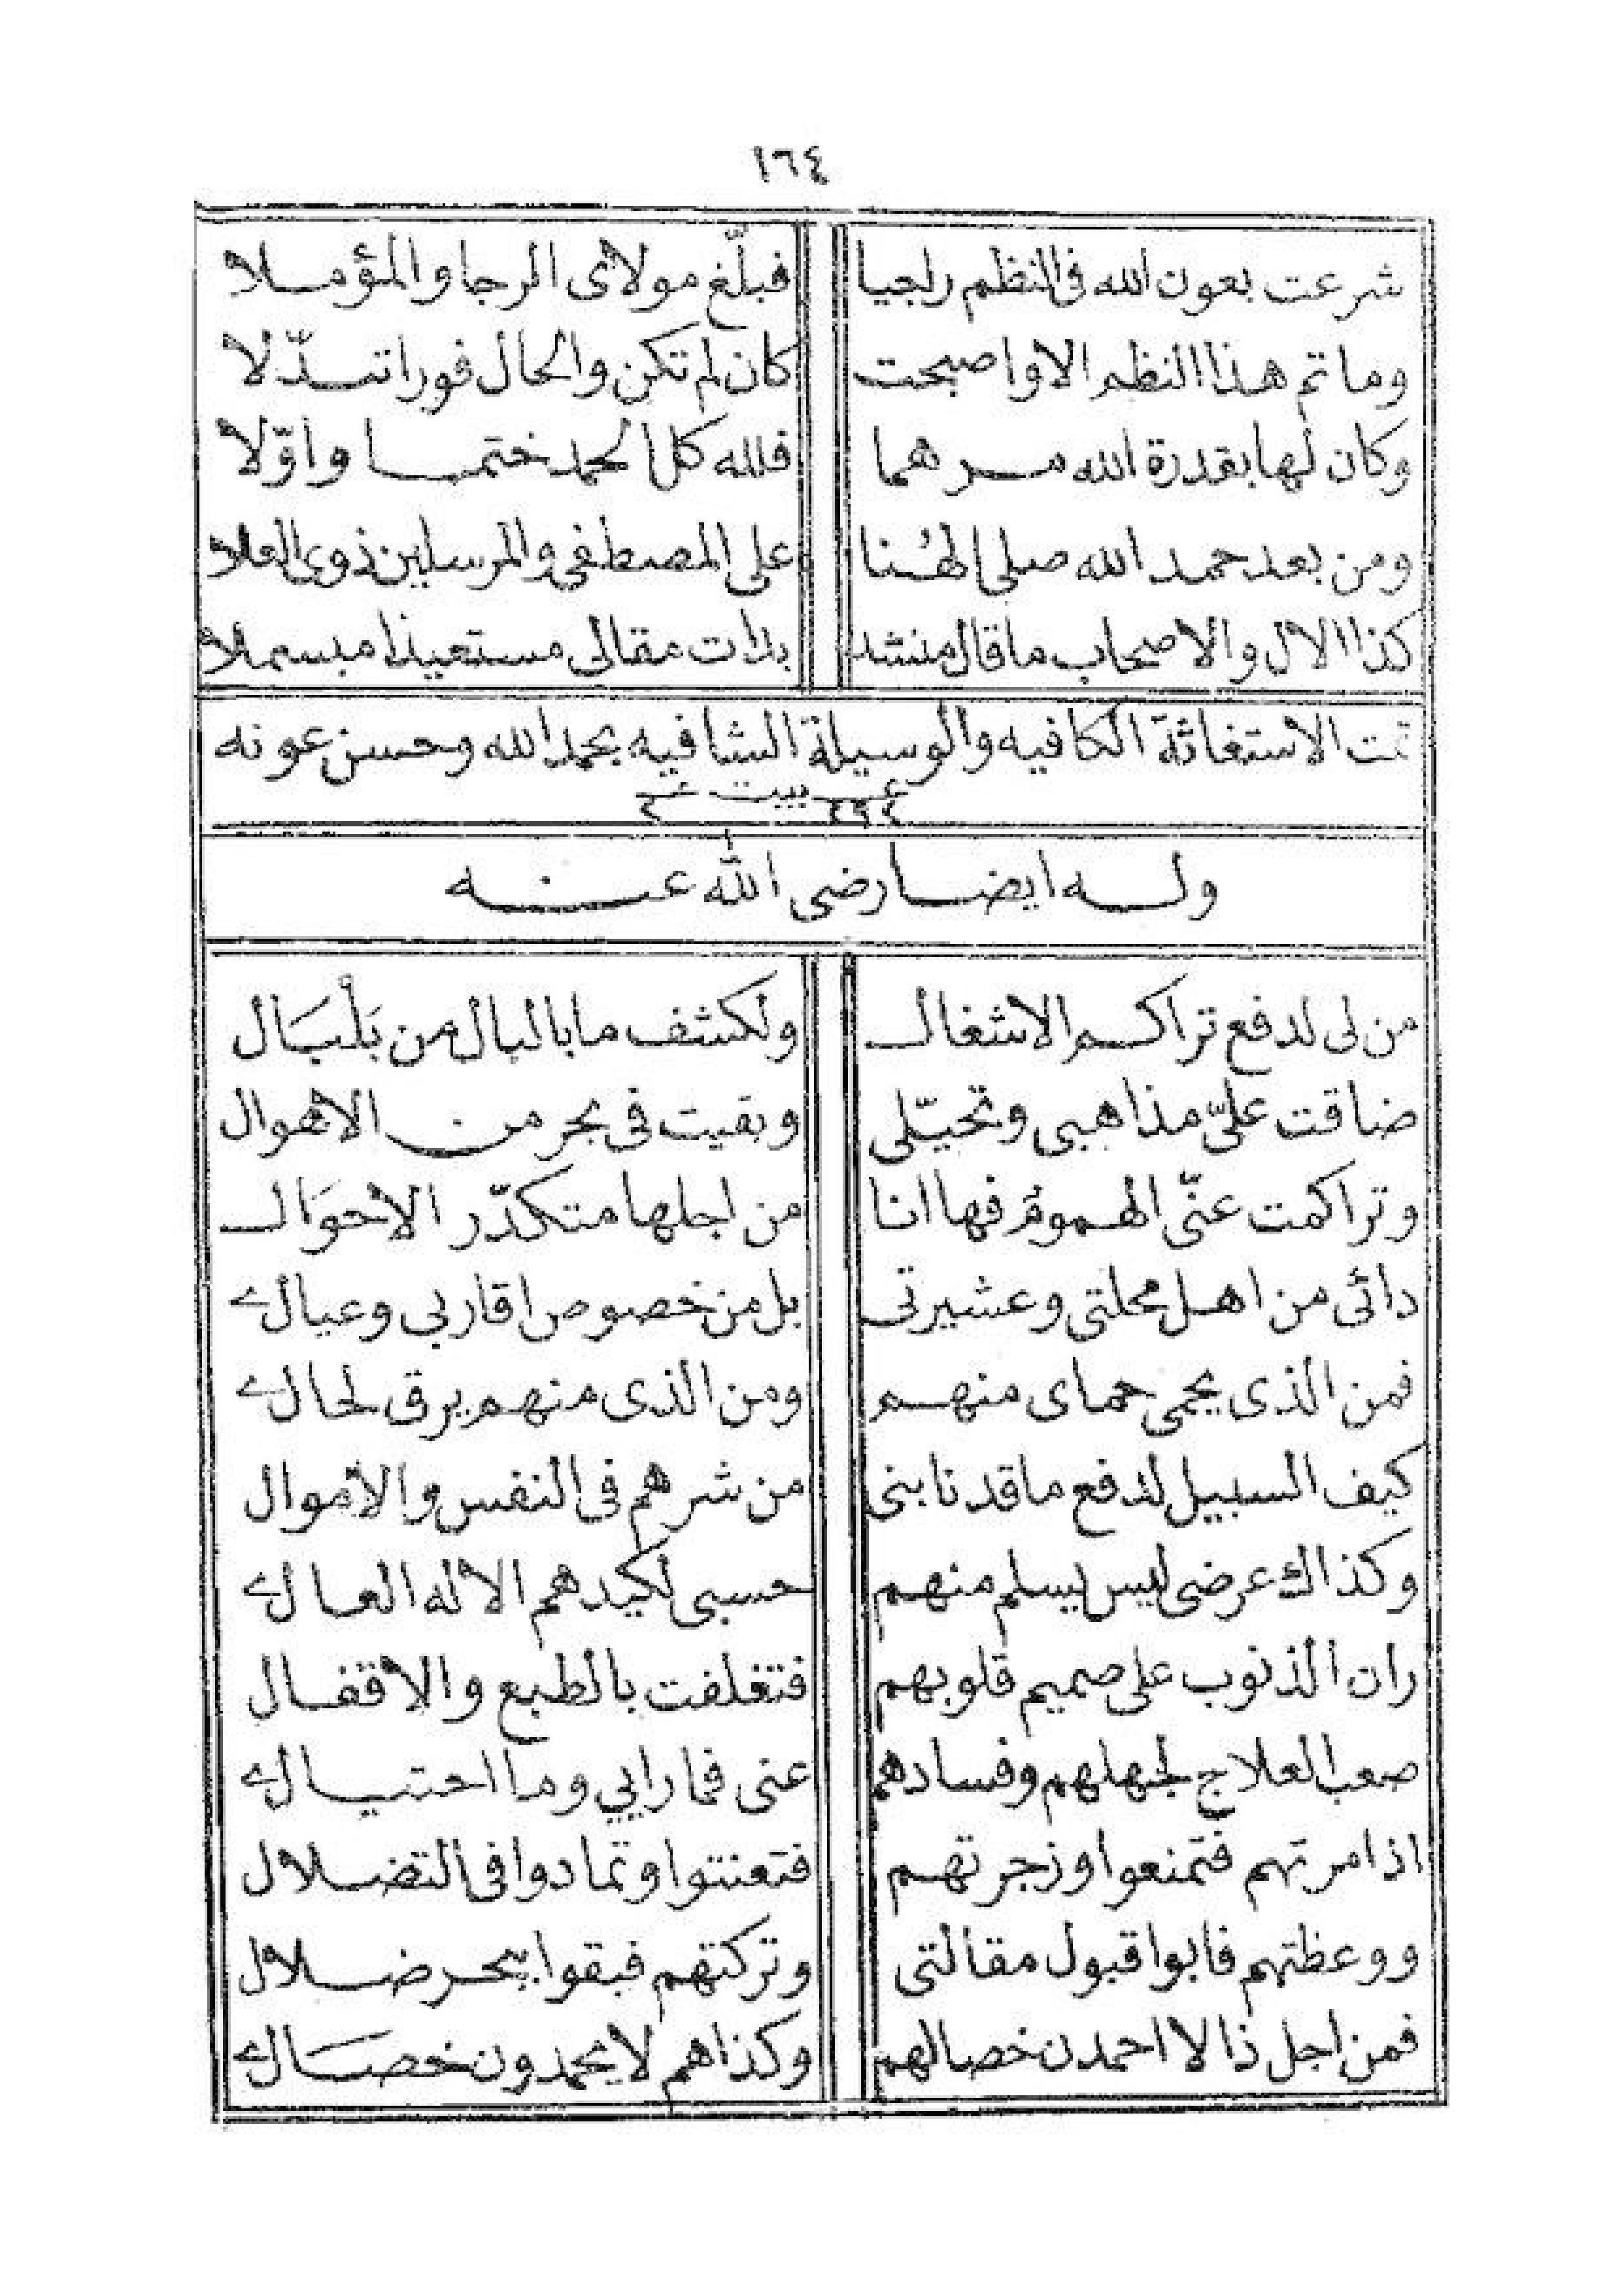 ١٦٤
شرعت بعون الله فى النظم راجيا فبلّغ مولاى الرجا والمؤملا
وما تم هذا النظم الا واصبحت كان لم تكن والحال فورا تبدّلا
وكان لها بقدرة الله مرهما فلله كل الحمد ختما واوّلا
ومن بعد حمد الله صلى الهُنا على المصطفى والمرسلين ذوى العلا
كذا الال والاصحاب ما قال منشد بدات مقالى مستعيذا مبسملا
تمت الاستغاثة الكافيه والوسيلة الشافيه بحمد الله وحسن عونه
بيت
وله ايضا رضى الله عنه
من لى لدفع تراكم الاشغال ولكشف ما بالبال من بَلْبَال
ضاقت علىّ مذاهبى وتحيّلى وبقيت فى بحر من الاهوال
وتراكمت عنّى الهمومُ فها انا من اجلها متكدّر الاحوَال
دائى من اهل محلتى وعشيرتى بل من خصوص اقاربى وعيالى
فمن الذى يحمى حماى منهم ومن الذى منهم يرق لحالى
كيف السبيل لدفع ما قد نابنى من شرهم فى النفس والاموال
وكذاك عرضى ليس يسلم منهم حسبى لكيدهم الاله العالى
ران الذنوب على صميم قلوبهم فتغلفت بالطبع والاقفال
صعب العلاج لجهلهم وفسادهم عنى فما رايي وما احتيالى
اذا مرتهم فتمنعوا وزجرتهم فتعنتوا وتمادوا فى التضلال
ووعظتهم فابوا قبول مقالتى وتركتهم فبقوا ببحر ضلال
فمن اجل ذا لا احمدن خصالهم وكذاهم لا يحمدون خصَالى